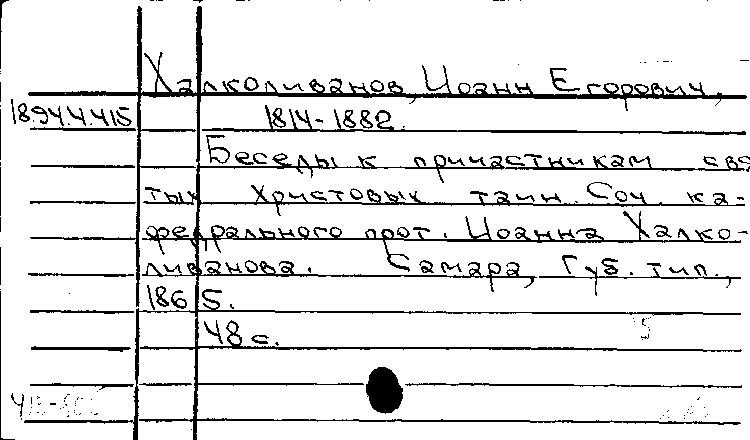 Халколиванов, Иоанн Егорович,
1894.4.415 1814-1882.
Беседы к причастникам свя
тых Христовых таин. Соч. ка-
федрального прот. Иоанна Халко-
ливанова. Самара, Губ. тип.,
1865.
48 с. 5